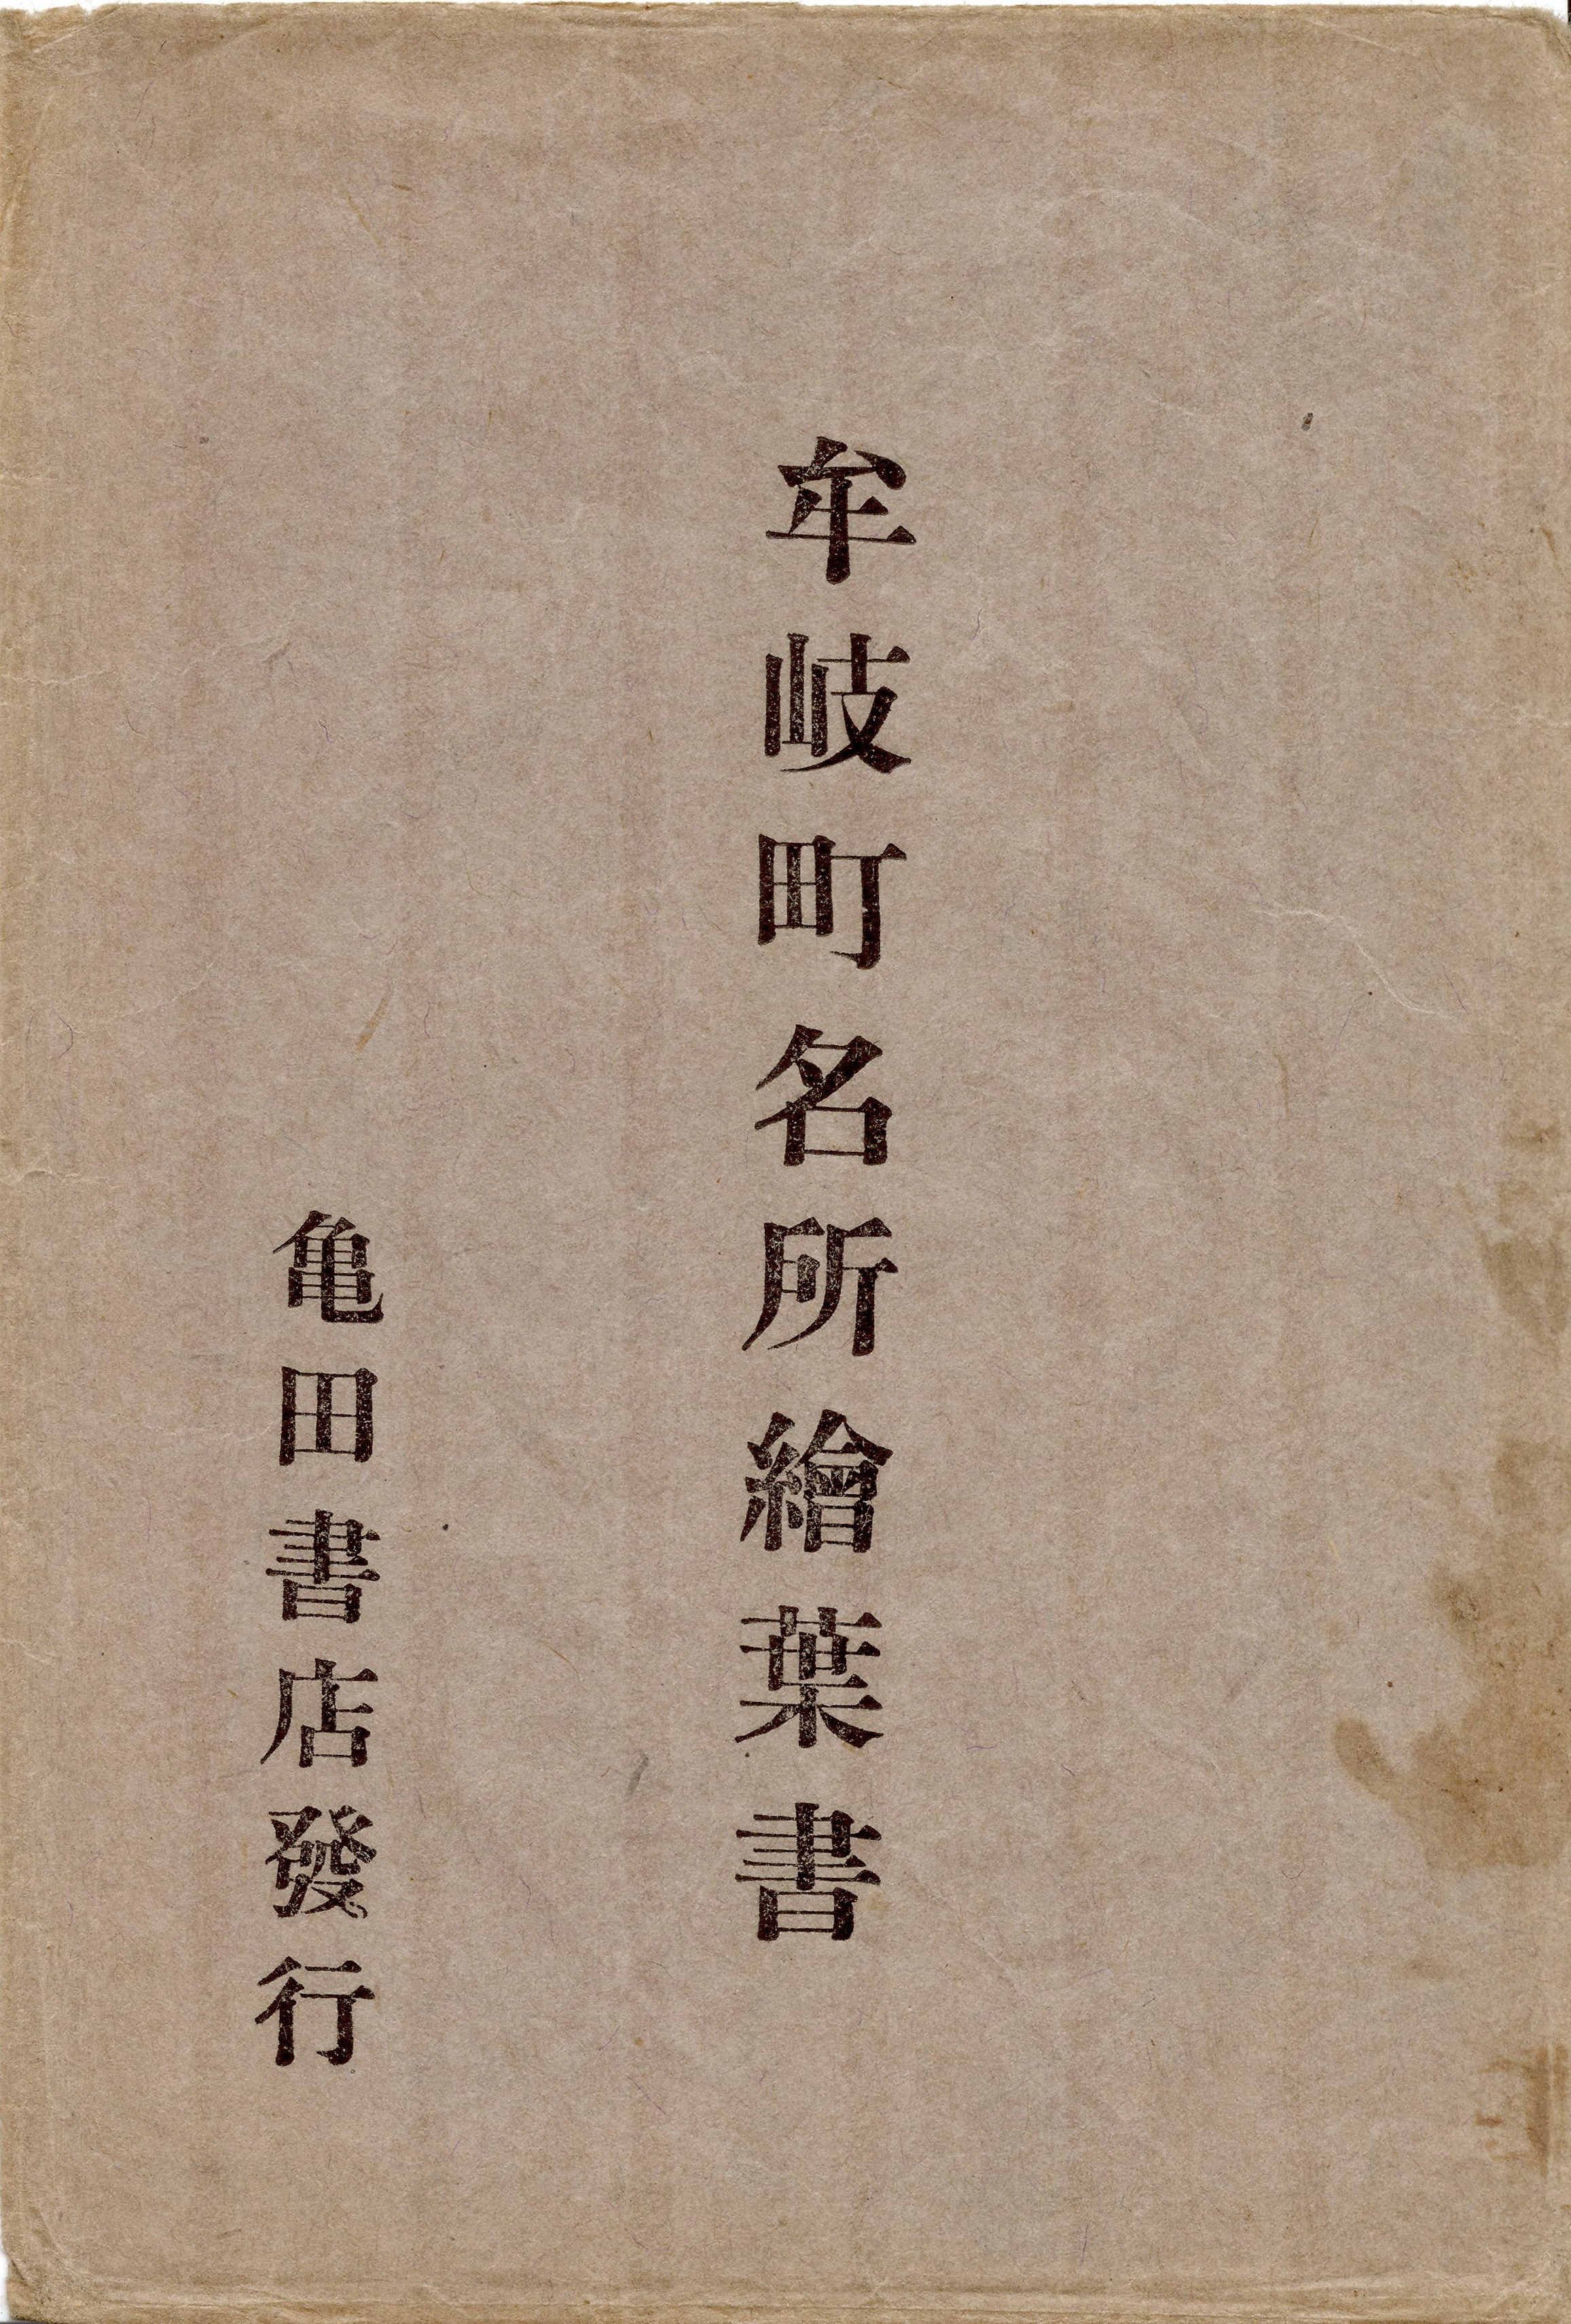 牟岐町名所繪葉書
亀田書店發行